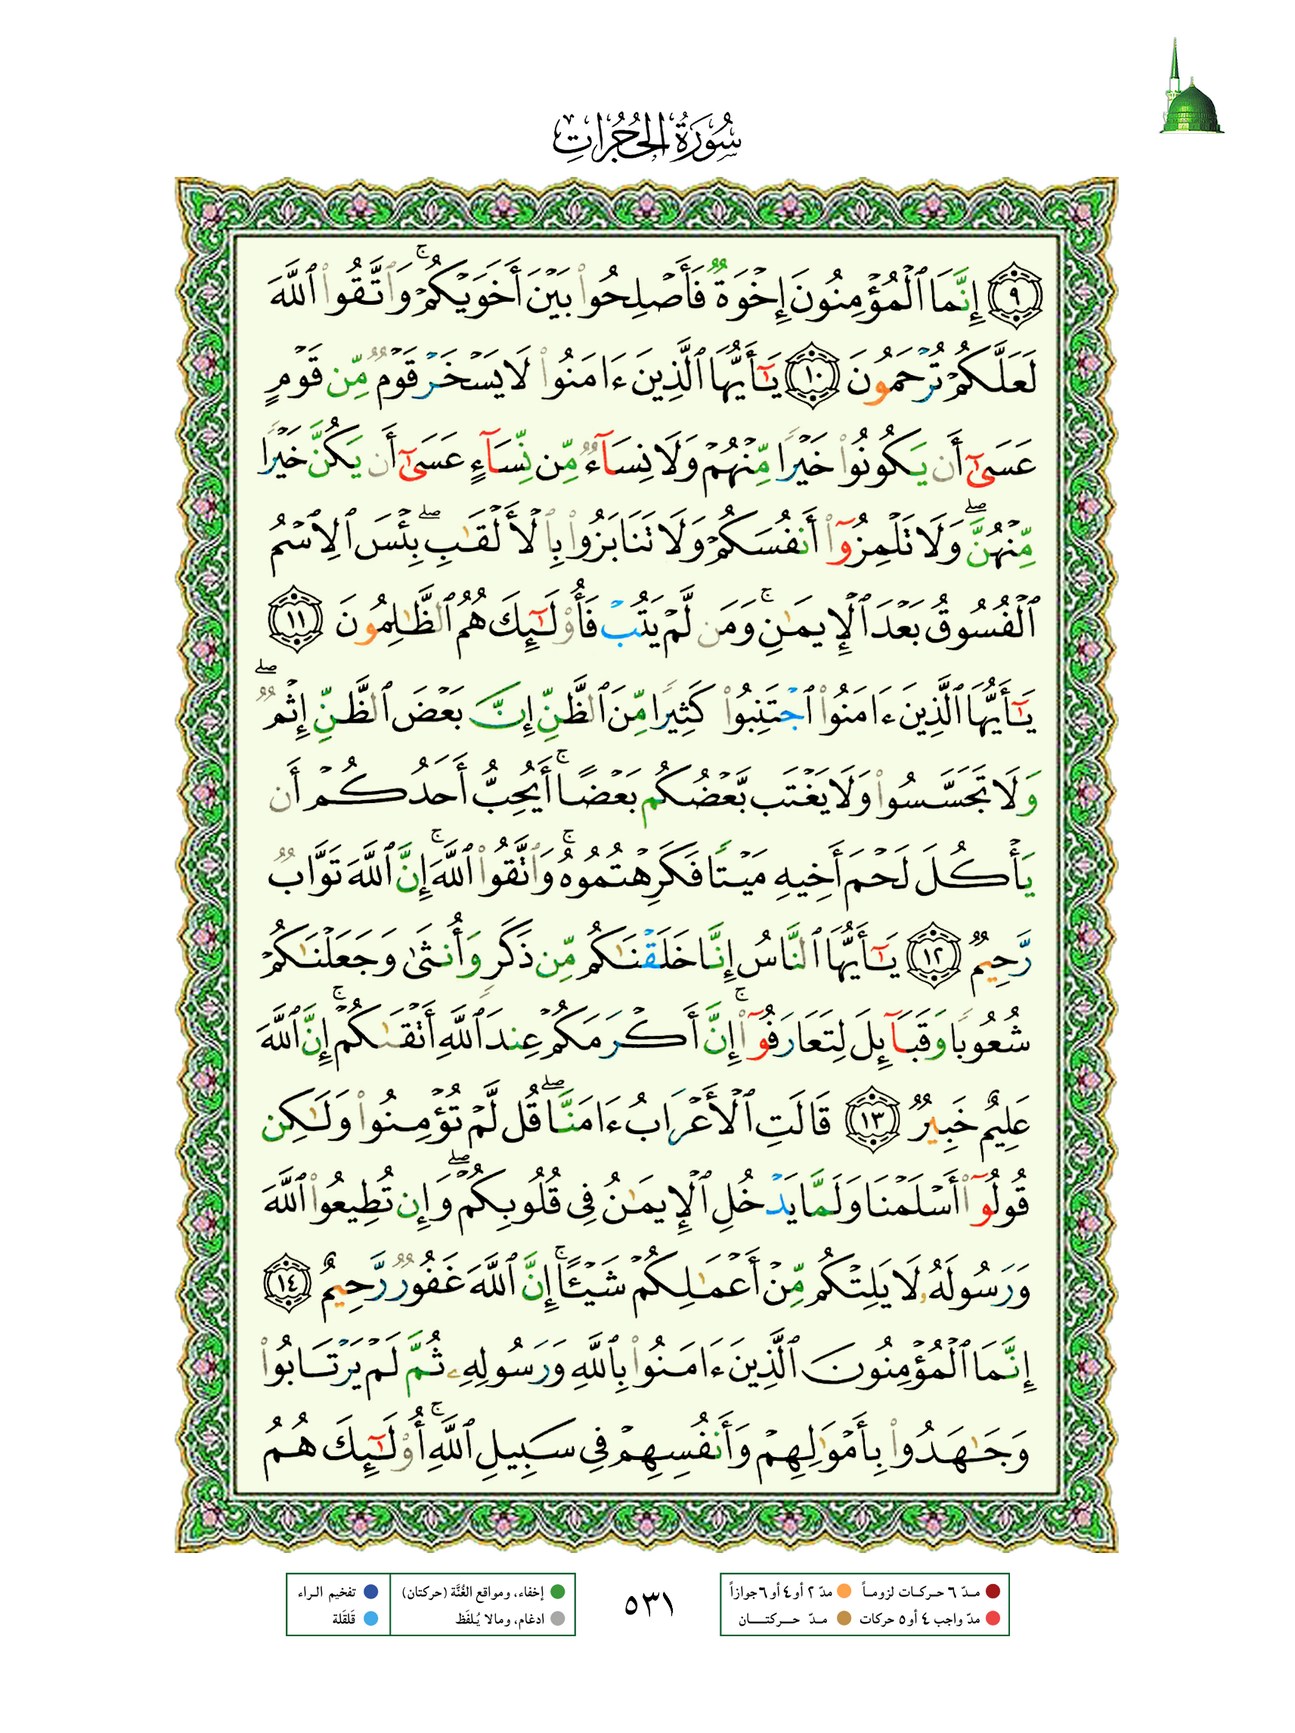 سُورَةُ الحُجُرَاتِ
٩ إِنَّمَا ٱلْمُؤْمِنُونَ إِخْوَةٌ فَأَصْلِحُوا۟ بَيْنَ أَخَوَيْكُمْ ۚ وَٱتَّقُوا۟ ٱللَّهَ
لَعَلَّكُمْ تُرْحَمُونَ ١٠ يَـٰٓأَيُّهَا ٱلَّذِينَ ءَامَنُوا۟ لَا يَسْخَرْ قَوْمٌ مِّن قَوْمٍ
عَسَىٰٓ أَن يَكُونُوا۟ خَيْرًا مِّنْهُمْ وَلَا نِسَآءٌ مِّن نِّسَآءٍ عَسَىٰٓ أَن يَكُنَّ خَيْرًا
مِّنْهُنَّ ۖ وَلَا تَلْمِزُوٓا۟ أَنفُسَكُمْ وَلَا تَنَابَزُوا۟ بِٱلْأَلْقَـٰبِ ۖ بِئْسَ ٱلِٱسْمُ
ٱلْفُسُوقُ بَعْدَ ٱلْإِيمَـٰنِ ۚ وَمَن لَّمْ يَتُبْ فَأُو۟لَـٰٓئِكَ هُمُ ٱلظَّـٰلِمُونَ ١١
يَـٰٓأَيُّهَا ٱلَّذِينَ ءَامَنُوا۟ ٱجْتَنِبُوا۟ كَثِيرًا مِّنَ ٱلظَّنِّ إِنَّ بَعْضَ ٱلظَّنِّ إِثْمٌ ۖ
وَلَا تَجَسَّسُوا۟ وَلَا يَغْتَب بَّعْضُكُم بَعْضًا ۚ أَيُحِبُّ أَحَدُكُمْ أَن
يَأْكُلَ لَحْمَ أَخِيهِ مَيْتًا فَكَرِهْتُمُوهُ ۚ وَٱتَّقُوا۟ ٱللَّهَ ۚ إِنَّ ٱللَّهَ تَوَّابٌ
رَّحِيمٌ ١٢ يَـٰٓأَيُّهَا ٱلنَّاسُ إِنَّا خَلَقْنَـٰكُم مِّن ذَكَرٍ وَأُنثَىٰ وَجَعَلْنَـٰكُمْ
شُعُوبًا وَقَبَآئِلَ لِتَعَارَفُوٓا۟ ۚ إِنَّ أَكْرَمَكُمْ عِندَ ٱللَّهِ أَتْقَـٰكُمْ ۚ إِنَّ ٱللَّهَ
عَلِيمٌ خَبِيرٌ ١٣ قَالَتِ ٱلْأَعْرَابُ ءَامَنَّا ۖ قُل لَّمْ تُؤْمِنُوا۟ وَلَـٰكِن
قُولُوٓا۟ أَسْلَمْنَا وَلَمَّا يَدْخُلِ ٱلْإِيمَـٰنُ فِى قُلُوبِكُمْ ۖ وَإِن تُطِيعُوا۟ ٱللَّهَ
وَرَسُولَهُۥ لَا يَلِتْكُم مِّنْ أَعْمَـٰلِكُمْ شَيْـًٔا ۚ إِنَّ ٱللَّهَ غَفُورٌ رَّحِيمٌ ١٤
إِنَّمَا ٱلْمُؤْمِنُونَ ٱلَّذِينَ ءَامَنُوا۟ بِٱللَّهِ وَرَسُولِهِۦ ثُمَّ لَمْ يَرْتَابُوا۟
وَجَـٰهَدُوا۟ بِأَمْوَٰلِهِمْ وَأَنفُسِهِمْ فِى سَبِيلِ ٱللَّهِ ۚ أُو۟لَـٰٓئِكَ هُمُ
مدّ ٦ حركات لزوماً مدّ ٢ أو ٤ أو ٦ جوازاً
مدّ واجب ٤ أو ٥ حركات مدّ حركتان
٥٣١
إخفاء، ومواقع الغُنَّة (حركتان) تفخيم الراء
ادغام، ومالا يُلفَظ قَلقَلة